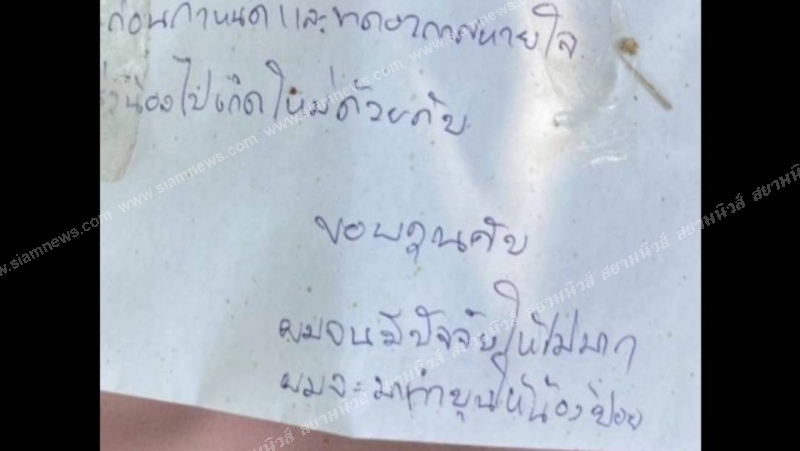 ก่อนกำหนดและขาดอากาศหายใจ
ส่งน้องไปเกิดใหม่ด้วยคับ
ขอบคุณคับ
ผมจนมีปัจจัยให้ไม่มาก
ผมจะมาทำบุญให้น้องบ่อย
www.siamnews.com
สยามนิวส์